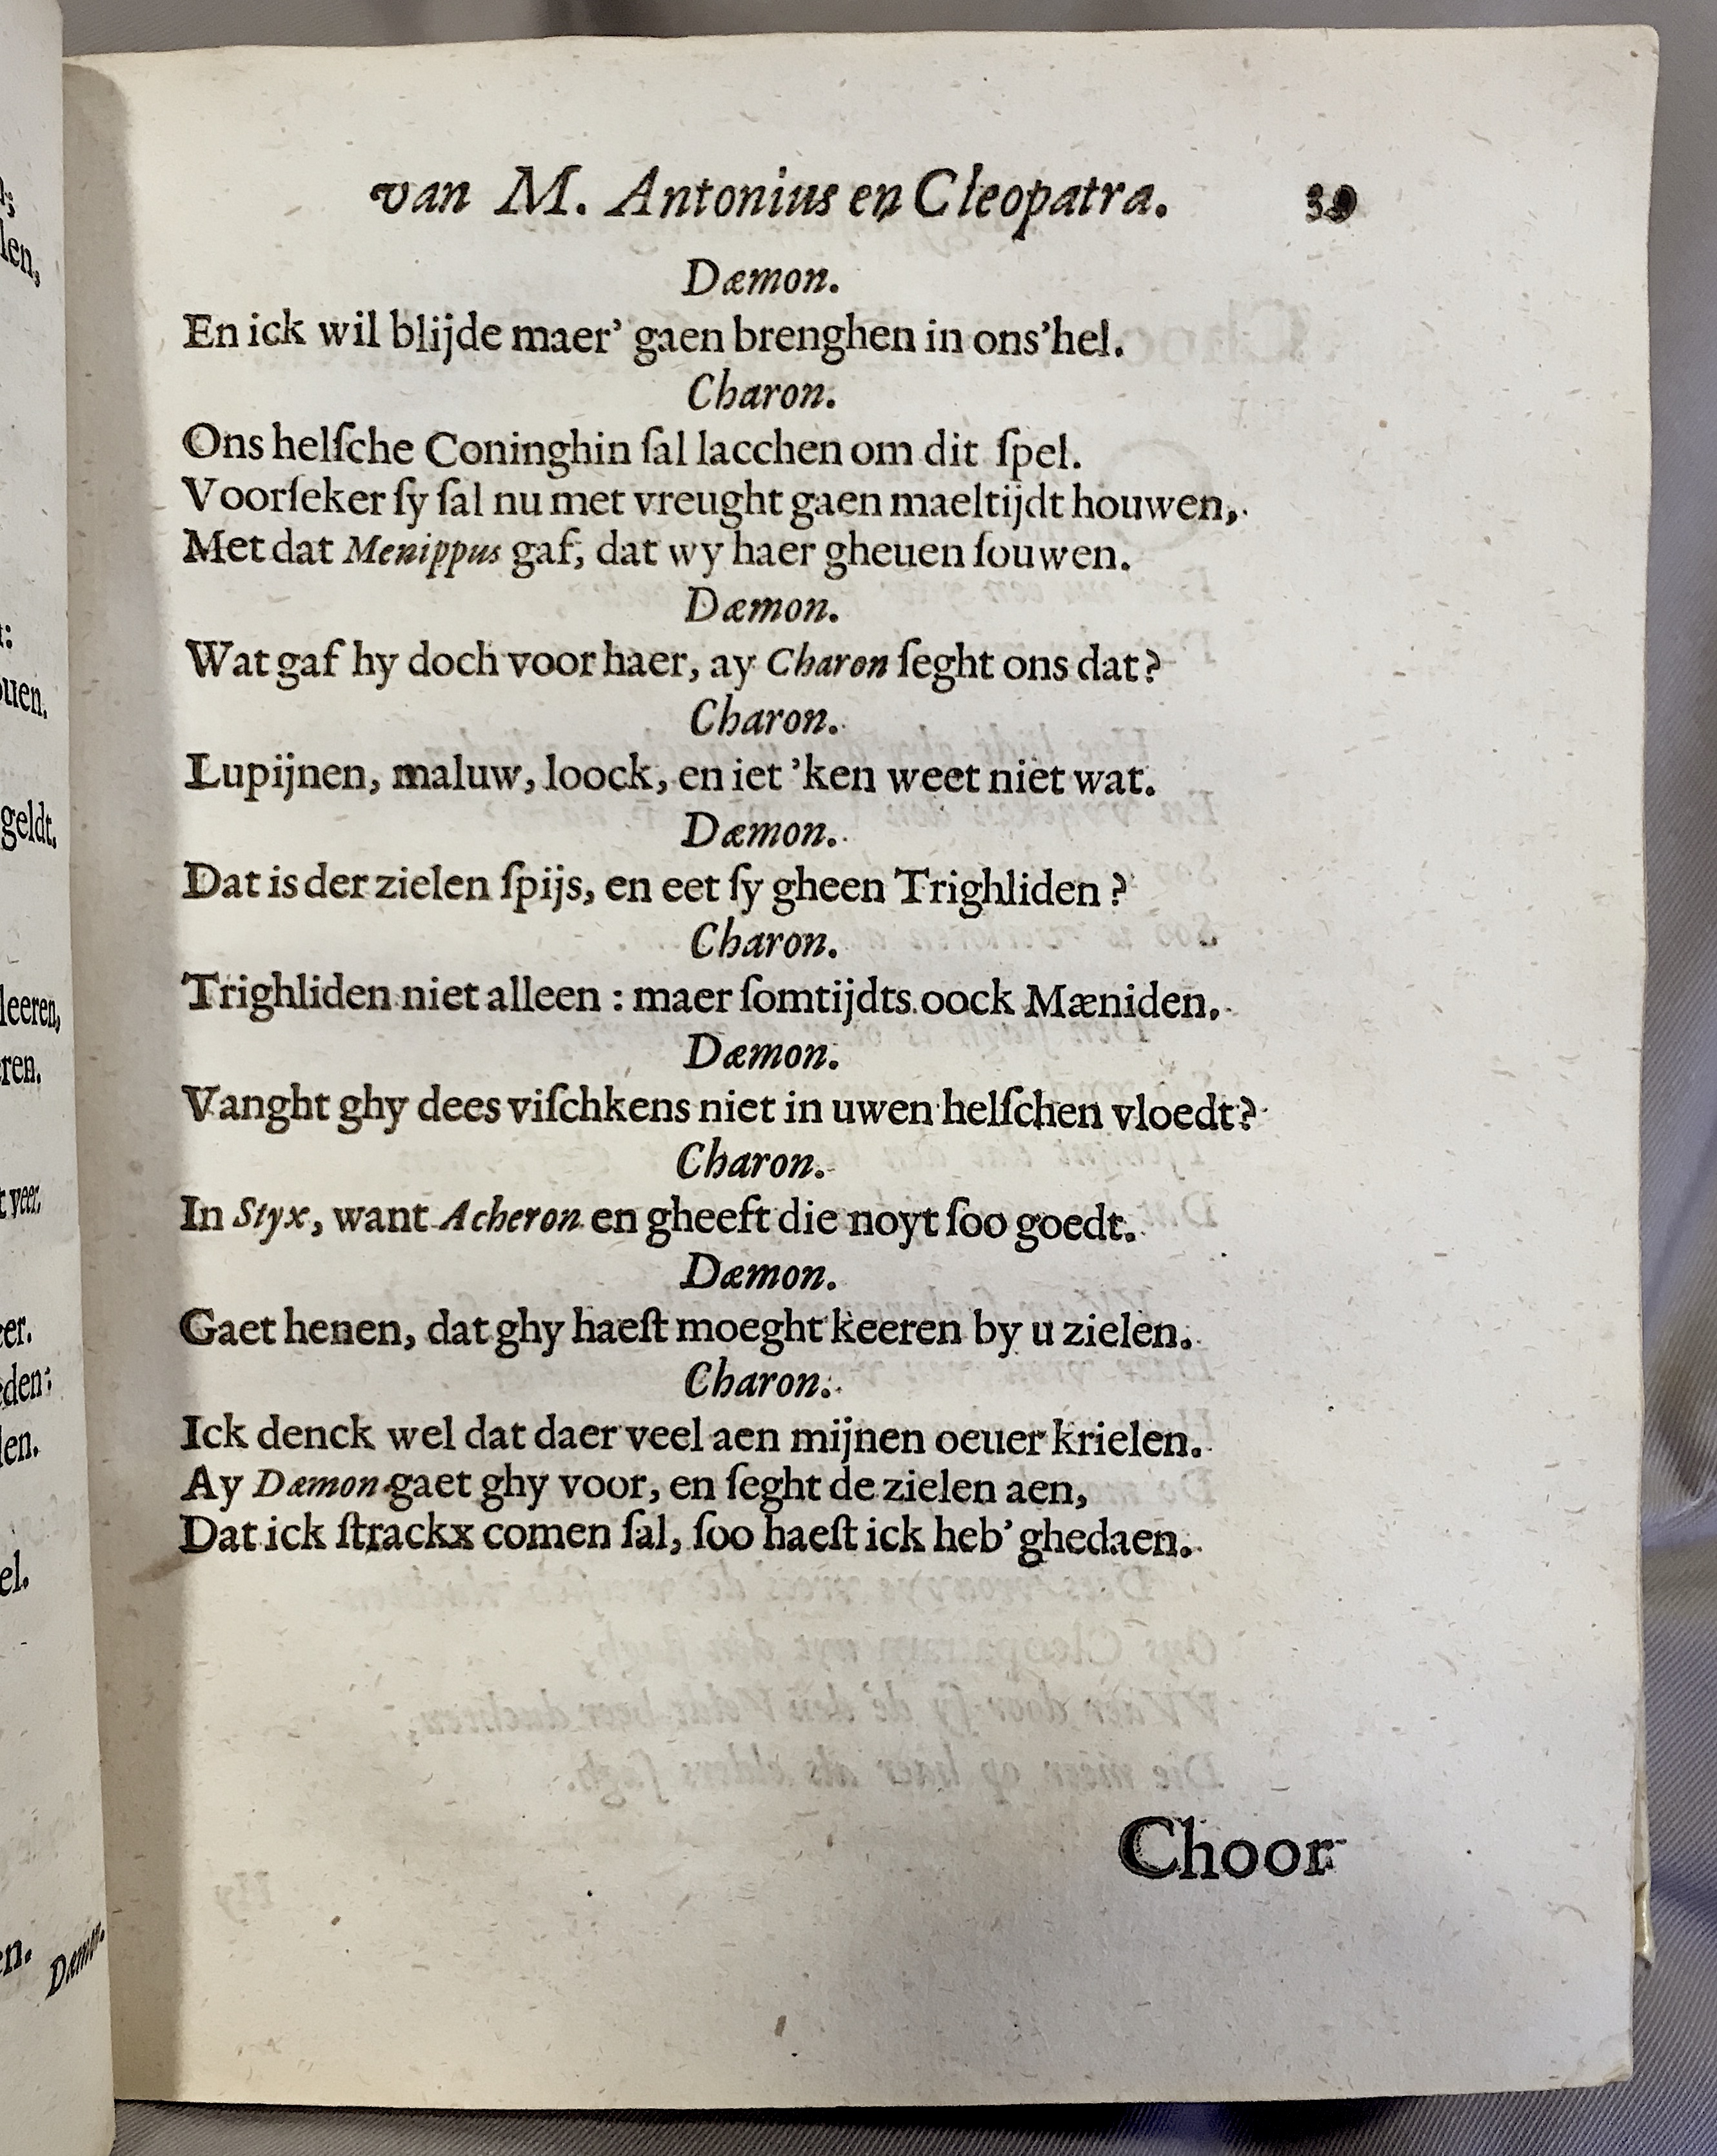 van M. Antonius en Cleopatra. 39
Dæmon.
En ick wil blijde maer' gaen brenghen in ons'hel.
Charon.
Ons helſche Coninghin ſal lacchen om dit ſpel.
Voorſeker ſy ſal nu met vreught gaen maeltijdt houwen,
Met dat Menippus gaf, dat wy haer gheuen ſouwen.
Dæmon.
Wat gaf hy doch voor haer, ay Charon ſeght ons dat?
Charon.
Lupijnen, maluw, loock, en iet 'ken weet niet wat.
Dæmon.
Dat is der zielen ſpijs, en eet ſy gheen Trighliden?
Charon.
Trighliden niet alleen : maer ſomtijdts oock Mæniden.
Dæmon.
Vanght ghy dees viſchkens niet in uwen helſchen vloedt?
Charon.
In Styx, want Acheron en gheeft die noyt ſoo goedt.
Dæmon.
Gaet henen, dat ghy haeſt moeght keeren by u zielen.
Charon.
Ick denck wel dat daer veel aen mijnen oeuer krielen.
Ay Dæmon gaet ghy voor, en ſeght de zielen aen,
Dat ick ſtrackx comen ſal, ſoo haeſt ick heb' ghedaen.
Choor
len,
ouen.
geldt.
leeren,
ren.
t veer,
eer.
eden:
len.
el.
en.
Dæmon.